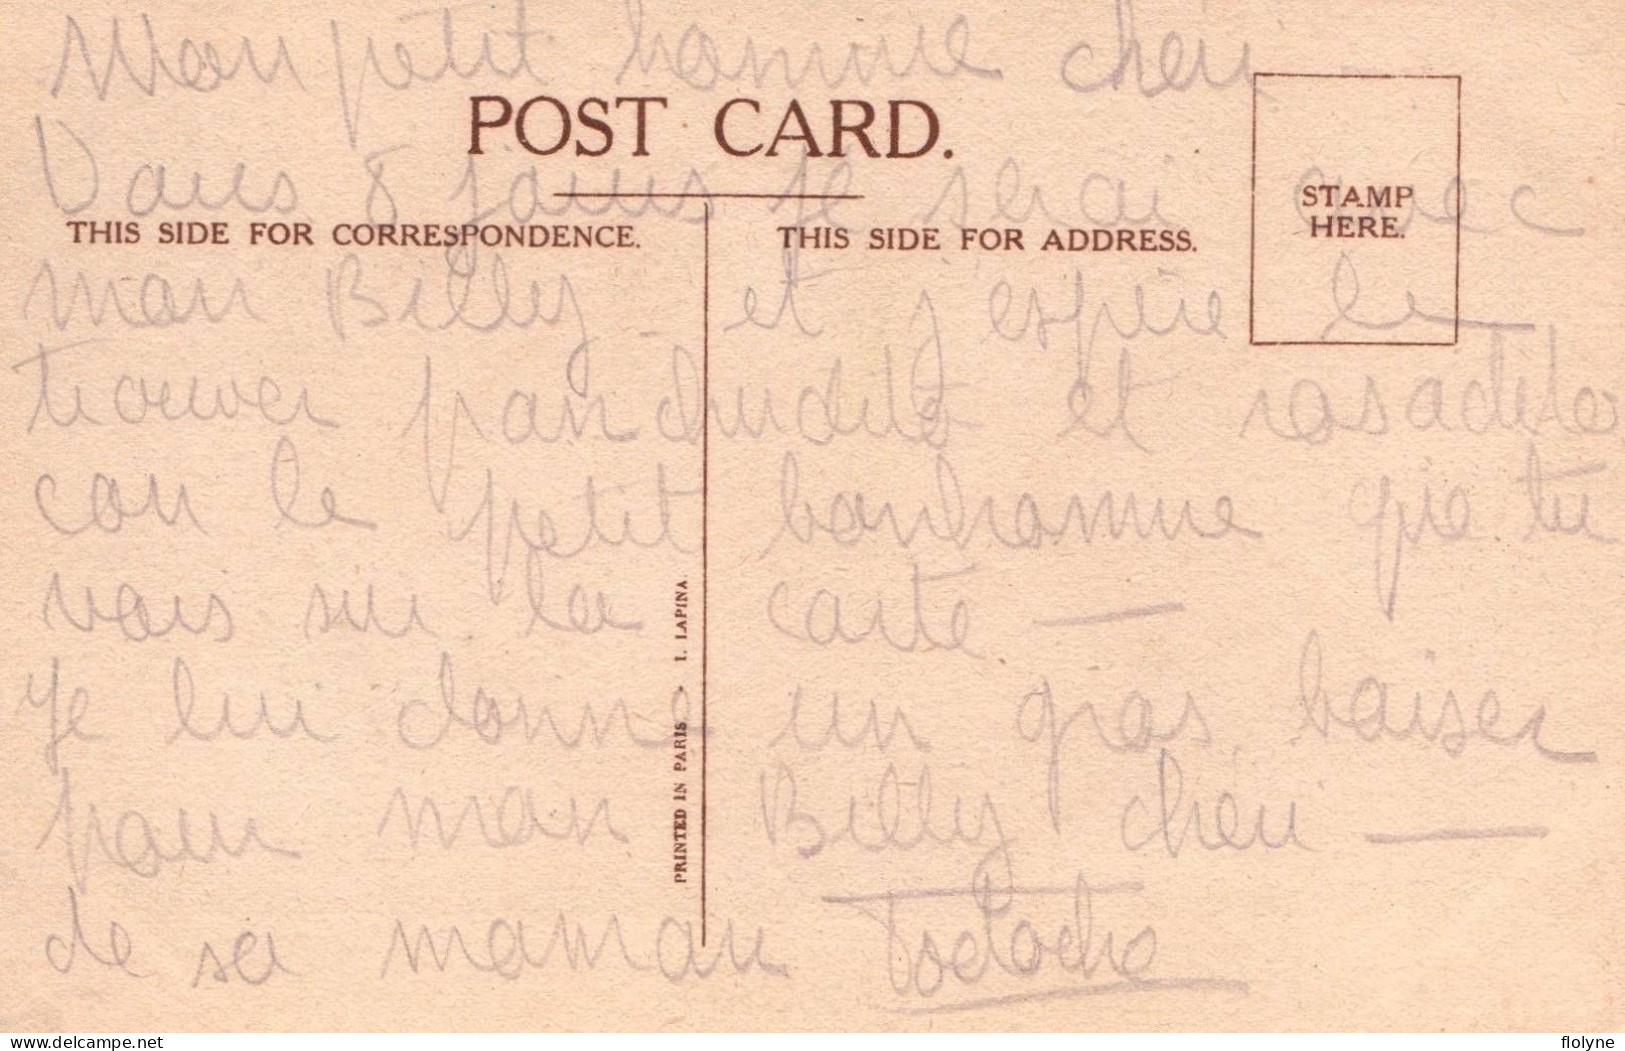 Mon petit homme chéri
POST CARD.
Dans 8 jours je serai avec
THIS SIDE FOR CORRESPONDENCE.
THIS SIDE FOR ADDRESS.
STAMP
HERE.
mon Billy et j'espère le
trouver et
con le petit bonhomme que tu
vois sur la carte —
Je lui donne un gros baiser
pour mon Billy chéri —
de sa maman
PRINTED IN PARIS • I. LAPINA
delcampe.net
flolyne